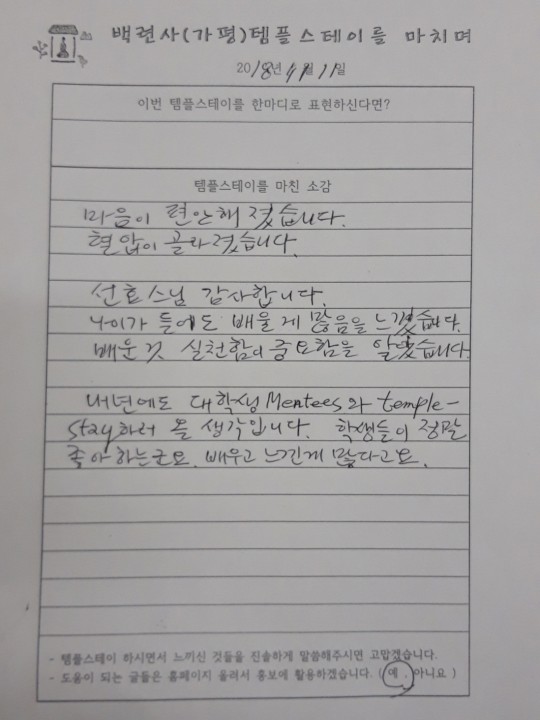 백련사(가평)템플스테이를 마치며
2018년 11월 11일
이번 템플스테이를 한마디로 표현하신다면?
템플스테이를 마친 소감
마음이 편안해 졌습니다.
혈압이 골라졌습니다.
선효스님 감사합니다.
나이가 들에도 배울게 많음을 느꼈습니다.
배운것 실천함의 중요함을 알았습니다.
내년에도 대학생 Mentees와 temple-
stay하러 올 생각입니다. 학생들이 정말
좋아하는군요. 배우고 느낀게 많다고요.
- 템플스테이 하시면서 느끼신 것들을 진솔하게 말씀해주시면 고맙겠습니다.
- 도움이 되는 글들은 홈페이지 올려서 홍보에 활용하겠습니다. ( 예 . 아니요 )